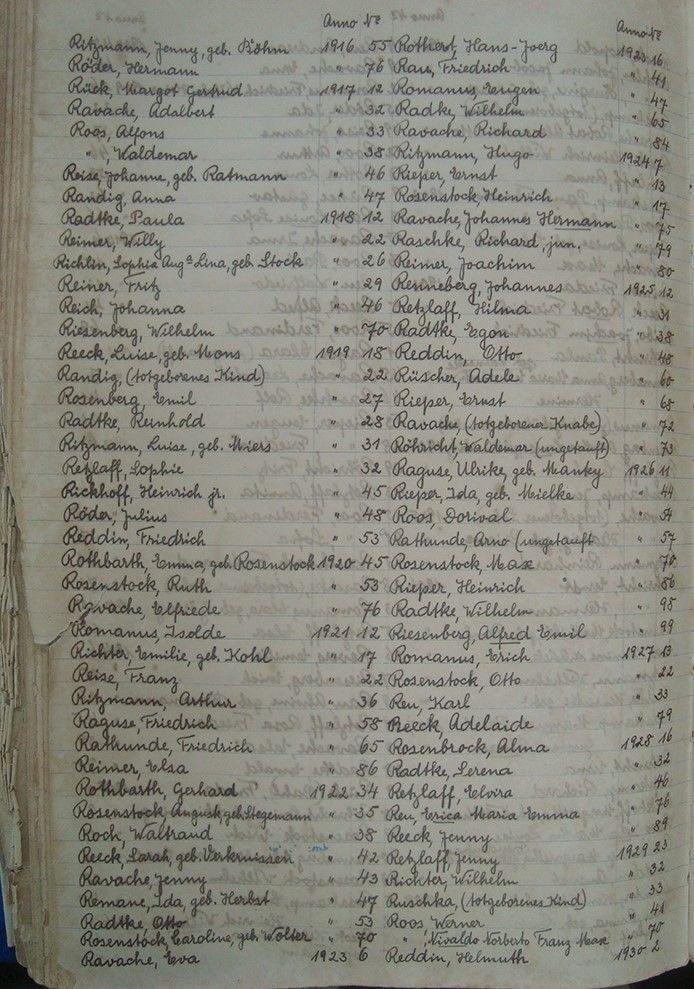 Anno No
Ritzmann, Jenny, geb. Böhm 1916 55
Röder, Hermann " 76
Rück, Margot Gertrud 1917 12
Ravache, Adalbert " 32
Roos, Alfons " 33
" , Waldemar " 38
Reise, Johanne, geb. Ratmann " 46
Randig, Anna " 47
Radtke, Paula 1918 12
Reimer, Willy " 22
Richlin, Sophia Auga Lina, geb. Stock " 26
Reiner, Fritz " 29
Reich, Johanna " 46
Riesenberg, Wilhelm " 70
Reeck, Luise, geb. Mons 1919 18
Randig, (totgeborenes Kind) " 22
Rosenberg, Emil " 27
Radtke, Reinhold " 28
Ritzmann, Luise, geb. Miers " 31
Retzlaff, Sophie " 32
Rickhoff, Heinrich jr. " 45
Röder, Julius " 48
Reddin, Friedrich " 53
Rothbarth, Emma, geb. Rosenstock 1920 45
Rosenstock, Ruth " 53
Ravache, Elfriede " 76
Romanus, Isolde 1921 12
Richter, Emilie, geb. Kohl " 17
Reise, Franz " 22
Ritzmann, Arthur " 36
Raguse, Friedrich " 58
Rathunde, Friedrich " 65
Reimer, Elsa " 86
Rothbarth, Gerhard 1922 34
Rosenstock, August, geb. Stegemann " 35
Roch, Waltraud " 38
Reeck, Sarah, geb. Verkruissen " 42
Ravache, Jenny " 43
Remane, Ida, geb. Herbst " 47
Radtke, Otto " 53
Rosenstock, Caroline, geb. Wolter " 70
Ravache, Eva 1923 6
Anno No
Rothert, Hans-Joerg 1923 16
Rau, Friedrich " 41
Romanus, Eugen " 47
Radke, Wilhelm " 65
Ravache, Richard " 84
Ritzmann, Hugo 1924 7
Rieper, Ernst " 13
Rosenstock, Heinrich " 17
Ravache, Johannes Hermann " 75
Raschke, Richard, jun. " 79
Reimer, Joachim " 80
Renneberg, Johannes 1925 12
Retzlaff, Hilma " 31
Radtke, Egon " 38
Reddin, Otto " 48
Rüscher, Adele " 60
Rieper, Ernst " 65
Ravache, (totgeborener Knabe) " 72
Röhricht, Waldemar (ungetauft) " 73
Raguse, Ulrike, geb. Manky 1926 11
Rieper, Ida, geb. Mielke " 44
Roos, Dorival " 54
Rathunde, Arno (ungetauft " 57
Rosenstock, Max " 70
Rieper, Heinrich " 86
Radtke, Wilhelm " 98
Riesenberg, Alfred Emil " 99
Romanus, Erich 1927 13
Rosenstock, Otto " 22
Reu, Karl " 33
Reeck, Adelaide " 79
Rosenbrock, Alma 1928 16
Radtke, Serena " 32
Retzlaff, Elvira " 46
Reu, Erica Maria Emma " 76
Reeck, Jenny " 89
Retzlaff, Jenny 1929 23
Richter, Wilhelm " 32
Ruschka, (totgeborenes Kind) " 33
Roos Werner " 41
" , Nivaldo Norberto Franz Max " 70
Reddin, Helmuth 1930 2